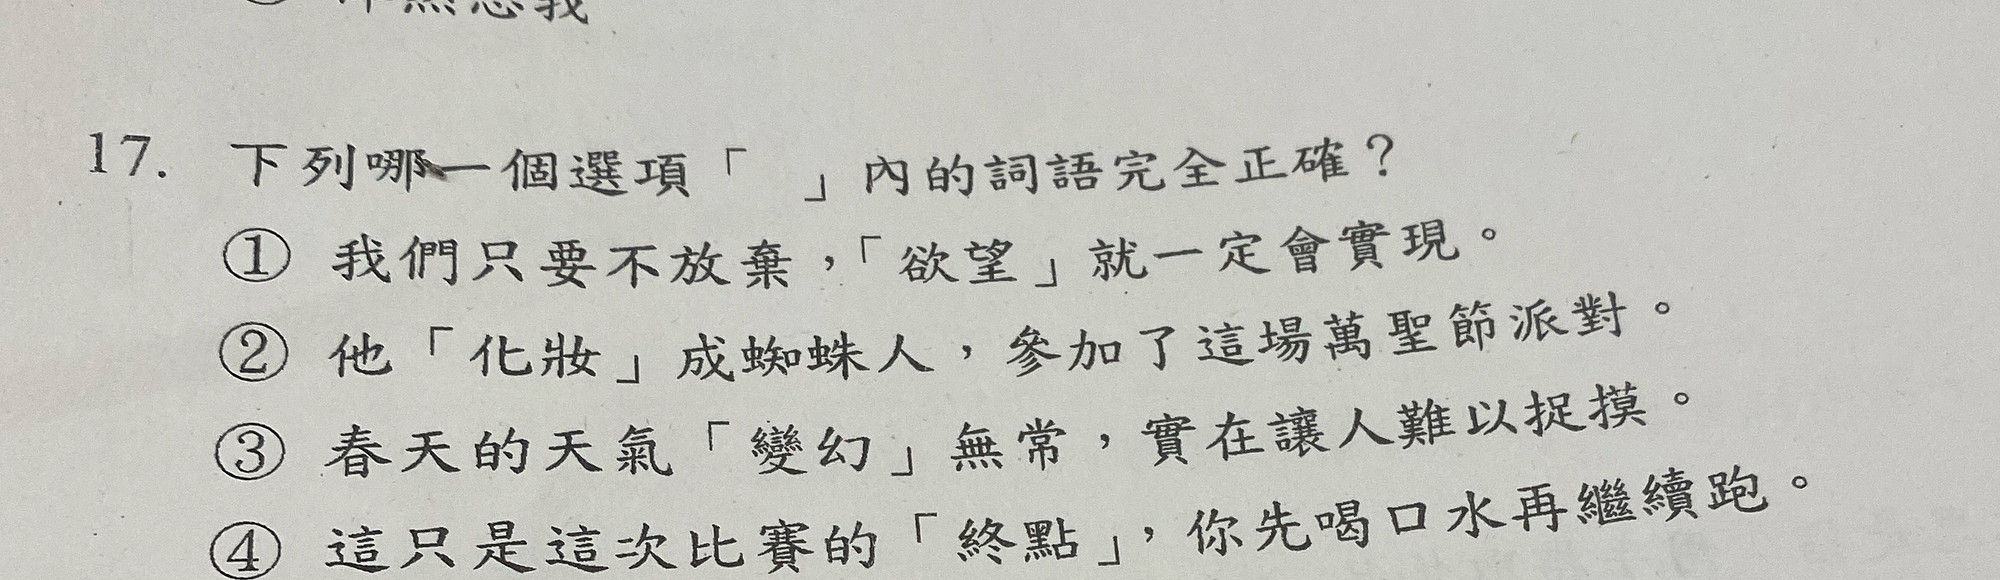 然惑我
17. 下列哪一個選項「　」內的詞語完全正確？
① 我們只要不放棄，「欲望」就一定會實現。
② 他「化妝」成蜘蛛人，參加了這場萬聖節派對。
③ 春天的天氣「變幻」無常，實在讓人難以捉摸。
④ 這只是這次比賽的「終點」，你先喝口水再繼續跑。